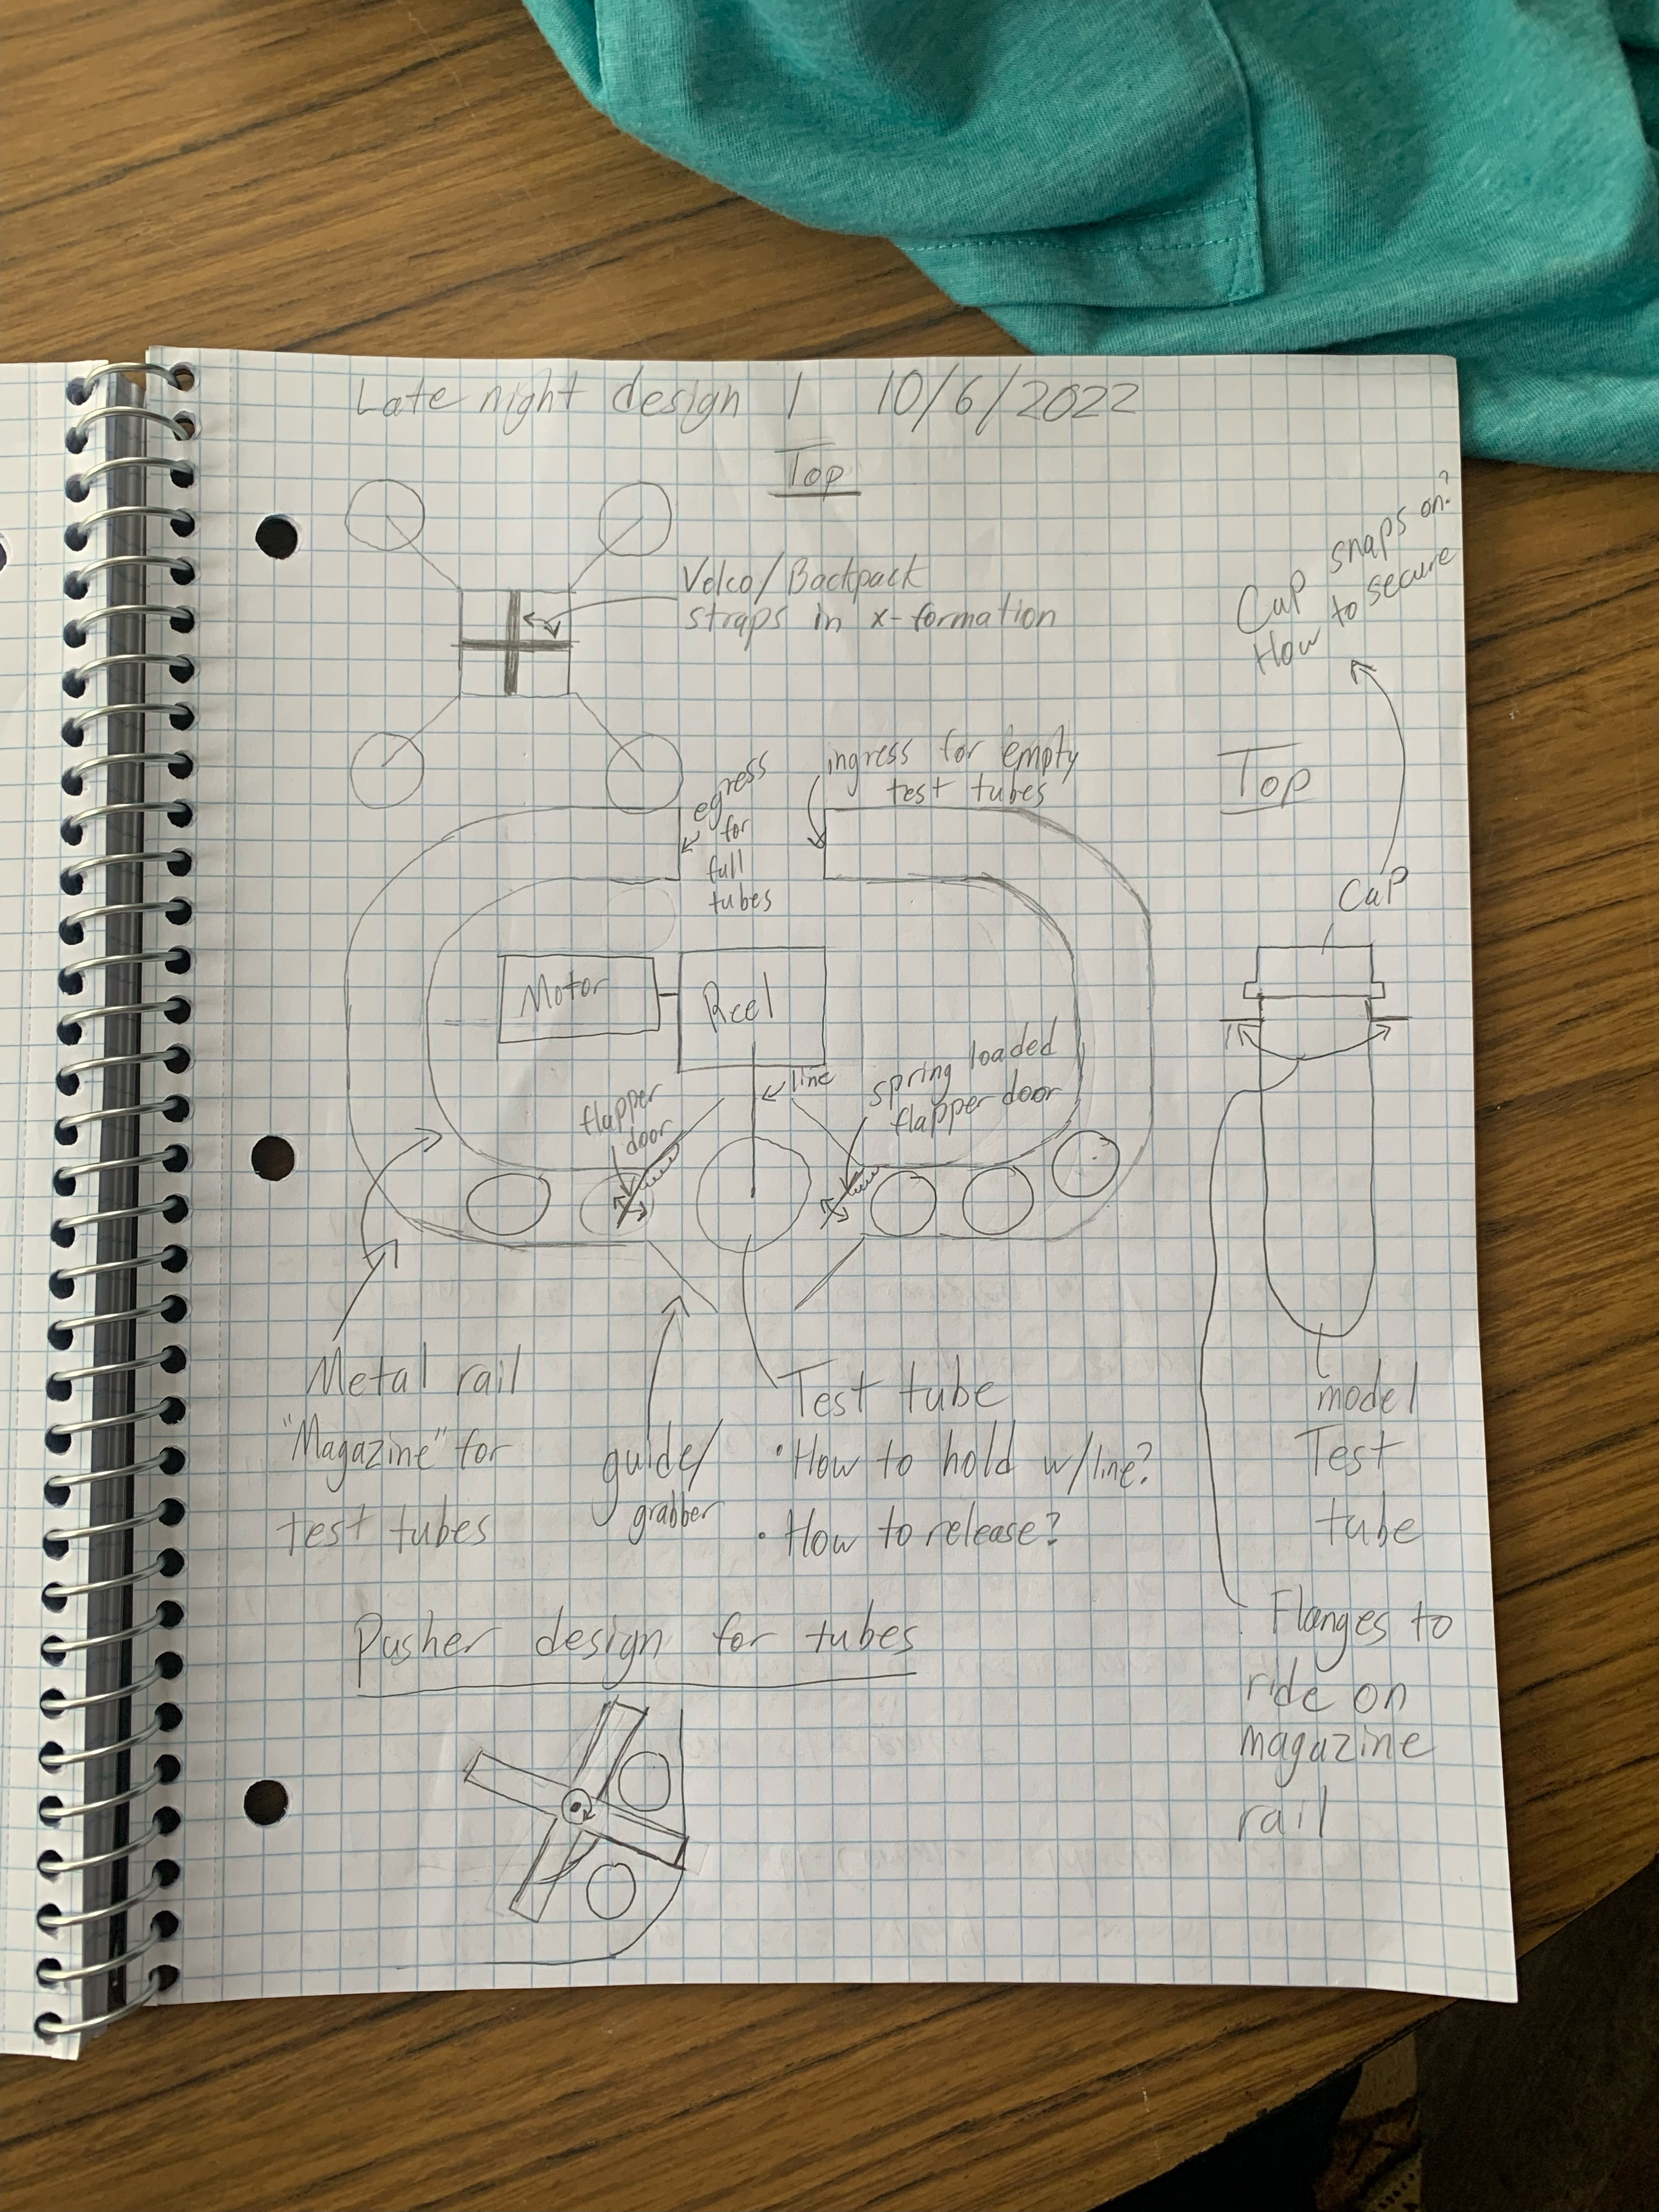 Late night design 1 10/6/2022
Top
Velco/Backpack
straps in x-formation
Cap snaps on?
How to secure
egress
for
full
tubes
ingress for empty
test tubes
Top
Cap
Motor
Reel
line
flapper
door
spring loaded
flapper door
Metal rail
"Magazine" for
test tubes
guide/
grabber
Test tube
• How to hold w/line?
• How to release?
model
Test
tube
Flanges to
ride on
magazine
rail
Pusher design for tubes